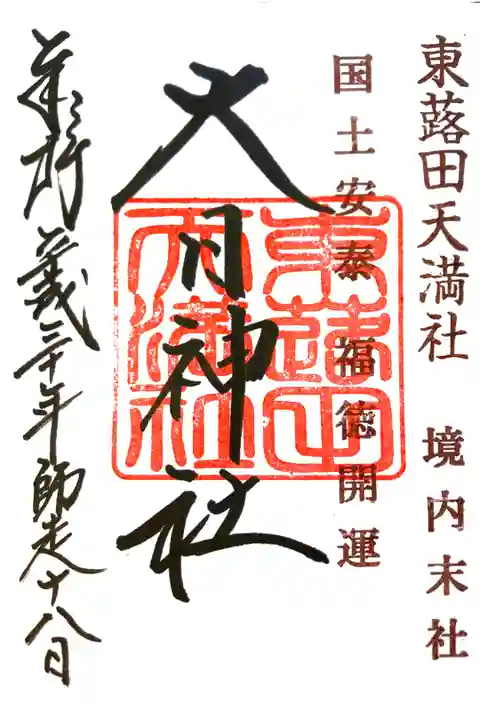 東蕗田天満社 境内末社
国土安泰 福徳開運
大月神社
東蕗田
天満社
三十年師走十八日